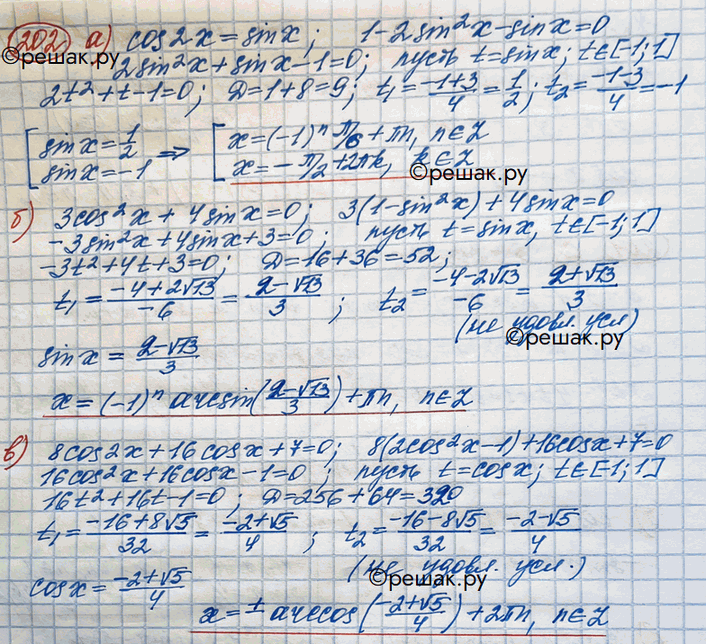 202. а) cos2x = sinx; 1-2sin²x-sinx=0
©решак.ру
2sin²x+sinx-1=0; пусть t=sinx; t∈[-1;1]
2t²+t-1=0; D=1+8=9; t₁=(-1+3)/4=1/2; t₂=(-1-3)/4=-1
©решак.ру
[sinx=1/2 => [x=(-1)ⁿ π/6+πn, n∈Z
[sinx=-1 [x=-π/2+2πk, k∈Z
©решак.ру
б) 3cos²x+4sinx=0; 3(1-sin²x)+4sinx=0
-3sin²x+4sinx+3=0; пусть t=sinx, t∈[-1;1]
-3t²+4t+3=0; D=16+36=52;
t₁=(-4+2√13)/-6=(2-√13)/3; t₂=(-4-2√13)/-6=(2+√13)/3
(не удовл. усл)
©решак.ру
sinx=(2-√13)/3
x=(-1)ⁿ arcsin((2-√13)/3)+πn, n∈Z
в) 8cos2x+16cosx+7=0; 8(2cos²x-1)+16cosx+7=0
16cos²x+16cosx-1=0; пусть t=cosx; t∈[-1;1]
16t²+16t-1=0; D=256+64=320
t₁=(-16+8√5)/32=(-2+√5)/4; t₂=(-16-8√5)/32=(-2-√5)/4
(не удовл. усл.)
©решак.ру
cosx=(-2+√5)/4
x=±arccos((-2+√5)/4)+2πn, n∈Z